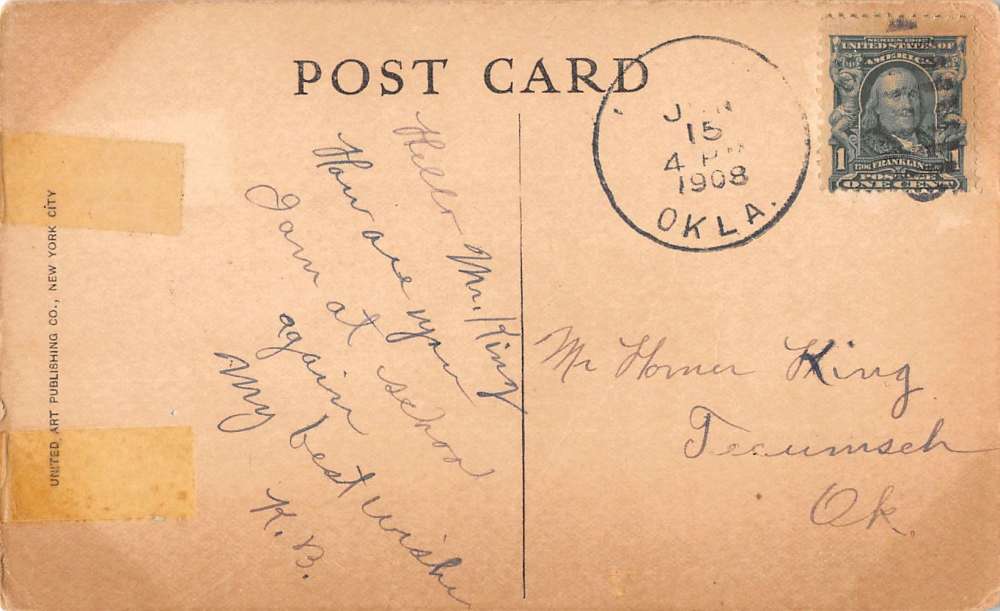 POST CARD
JAN
15
4 PM
1908
OKLA.
SERIES 1902
UNITED STATES OF
AMERICA
1 FRANKLIN 1
POSTAGE
ONE CENT
Hello Mr. King
How are you
I am at school
again
My best wishes
K. B.
Mr Homer King
Tecumseh
Ok.
UNITED ART PUBLISHING CO., NEW YORK CITY